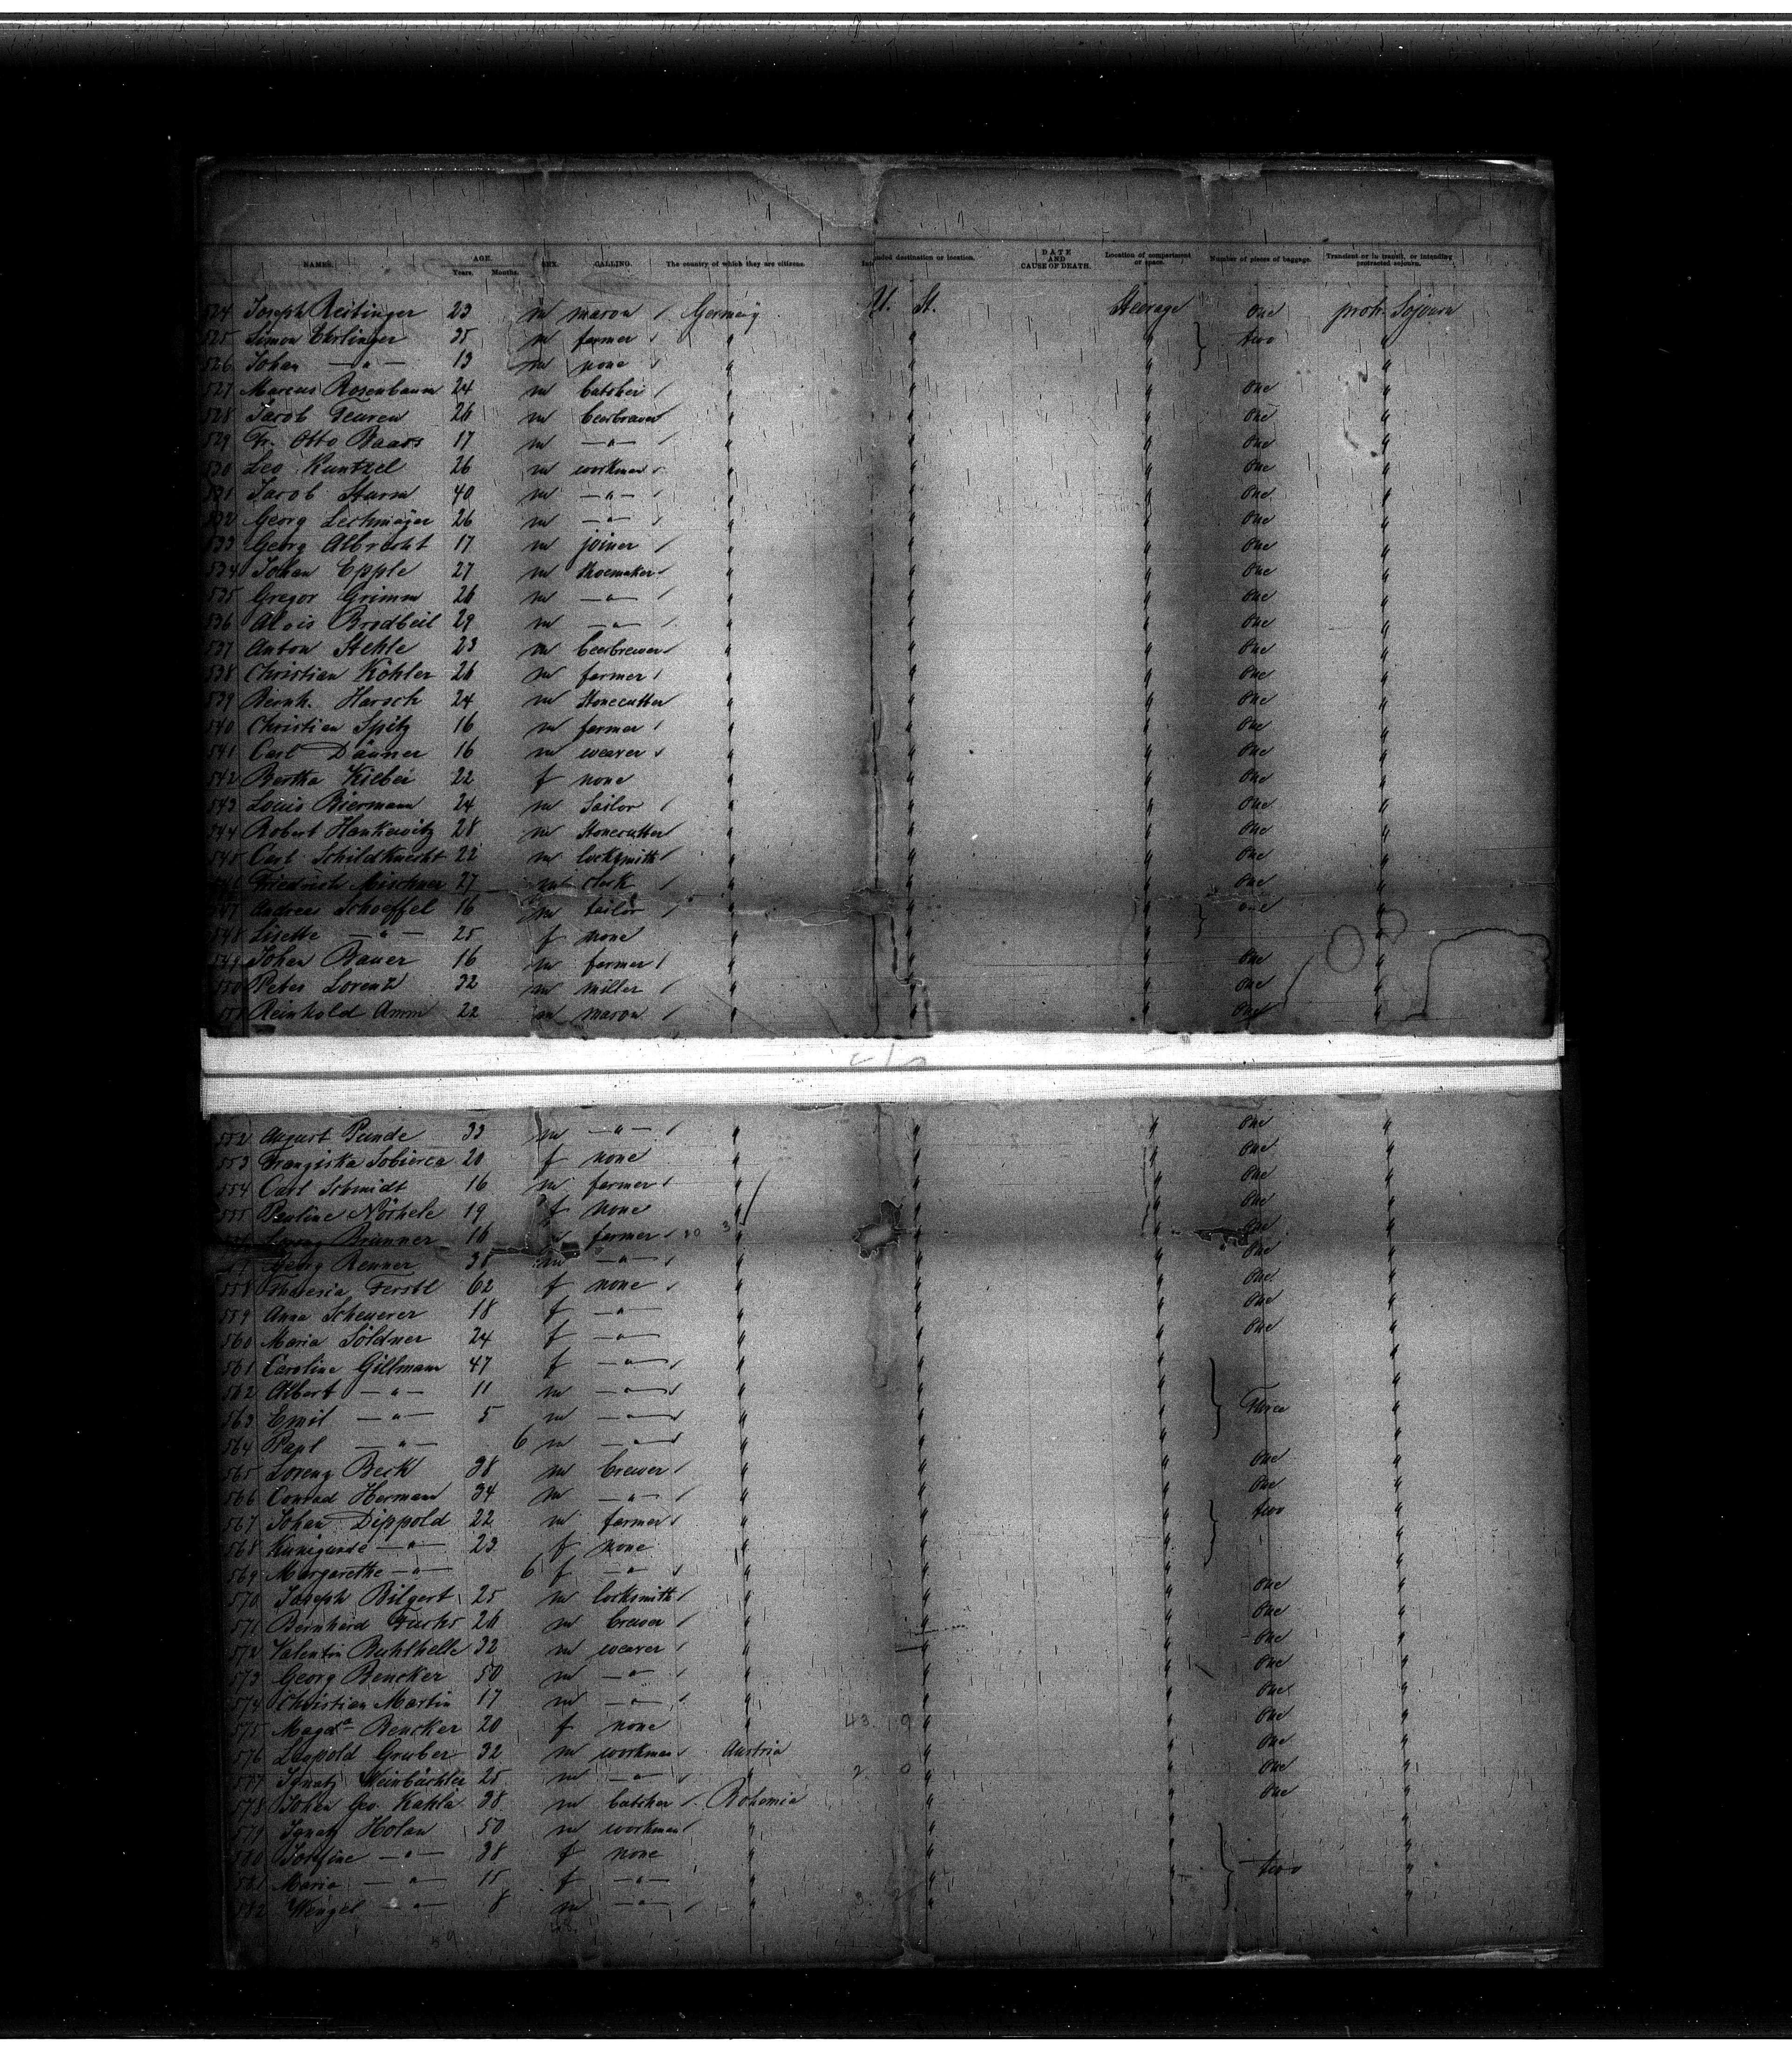 NAMES. AGE. Years. Months. SEX. CALLING. The country of which they are citizens. Intended destination or location. DATE AND CAUSE OF DEATH. Location of compartment or space. Number of pieces of baggage. Transient or in transit, or intending protracted sojourn.
524 Joseph Reitinger 23 m mason Germany U. St. Steerage One protr. Sojourn
525 Simon Ehrlinger 35 m farmer " " " two "
526 Johan —"— 13 m none " " " "
527 Marcus Rosenbaum 24 m butcher " " " One "
528 Jacob 26 m " " " One "
529 Fr. Otto Baars 17 m —"— " " " One "
530 Leo Kuntzel 26 m workman " " " One "
531 Jacob Sturm 40 m —"— " " " One "
532 Georg Lechmayer 26 m —"— " " " One "
533 Georg Albrecht 17 m joiner " " " One "
534 Johan Epple 27 m shoemaker " " " One "
535 Gregor Grimm 26 m —"— " " " One "
536 Alois Brodbeil 29 m —"— " " " One "
537 Anton Stehle 23 m beerbrewer " " " One "
538 Christian Köhler 26 m farmer " " " One "
539 Bernh. Harsch 24 m Stonecutter " " " One "
540 Christian Spitz 16 m farmer " " " One "
541 Carl Dänner 16 m weaver " " " One "
542 Bertha 22 f none " " " One "
543 Louis Biermann 24 m Sailor " " " One "
544 Robert Hankewitz 28 m Stonecutter " " " One "
545 Carl Schildknecht 22 m locksmith " " " One "
546 Friedrich Mischner 27 m clerk " " " One "
547 Andreas Schoeffel 16 m tailor " " " one "
548 Lisette —"— 25 f none " " " "
549 Johan Bauer 16 m farmer " " " One "
550 Peter Lorenz 32 m miller " " " One "
551 Reinhold Amm 22 m mason " " " One "
552 August Punde 33 m —"— " " " One "
553 Franziska Sobierca 20 f none " " " One "
554 Carl Schmidt 16 m farmer " " " One "
555 Pauline Nöthele 19 f none " " " One "
Brunner 16 farmer " " " One "
Georg Renner 38 m —"— " " " One "
558 Theresia Ferstl 62 f none " " " One "
559 Anna Scheuerer 18 f —"— " " " One "
560 Maria Söldner 24 f —"— " " " One "
561 Caroline Gillmann 47 f —"— " " " "
562 Albert —"— 11 m —"— " " " "
563 Emil —"— 5 m —"— " " " Three "
564 Paul —"— 6 m —"— " " " "
565 Lorenz Beck 38 m brewer " " " One "
566 Conrad Herman 34 m —"— " " " One "
567 Johan Dippold 22 m farmer " " " two "
568 Kunigunde —"— 23 f none " " " "
569 Margarethe —"— 6 f —"— " " " "
570 Joseph Bilgert 25 m locksmith " " " One "
571 Bernhard Fuchs 26 m brewer " " " One "
572 Valentin Buhlhelle 32 m weaver " " " One "
573 Georg Bencker 50 m —"— " " " One "
574 Christian Martin 17 m —"— " " " One "
575 Magda Bencker 20 f none " " " One "
576 Leopold Gruber 32 m workman Austria " " One "
577 Ignatz Weinbächler 25 m —"— " " " One "
578 Johan Geo. Kahla 38 m butcher Bohemia " " One "
579 Ignatz Holan 50 m workman " " " "
580 Josefine —"— 38 f none " " " "
581 Maria —"— 15 f —"— " " " two "
582 Wenzel —"— 8 m —"— " " " "